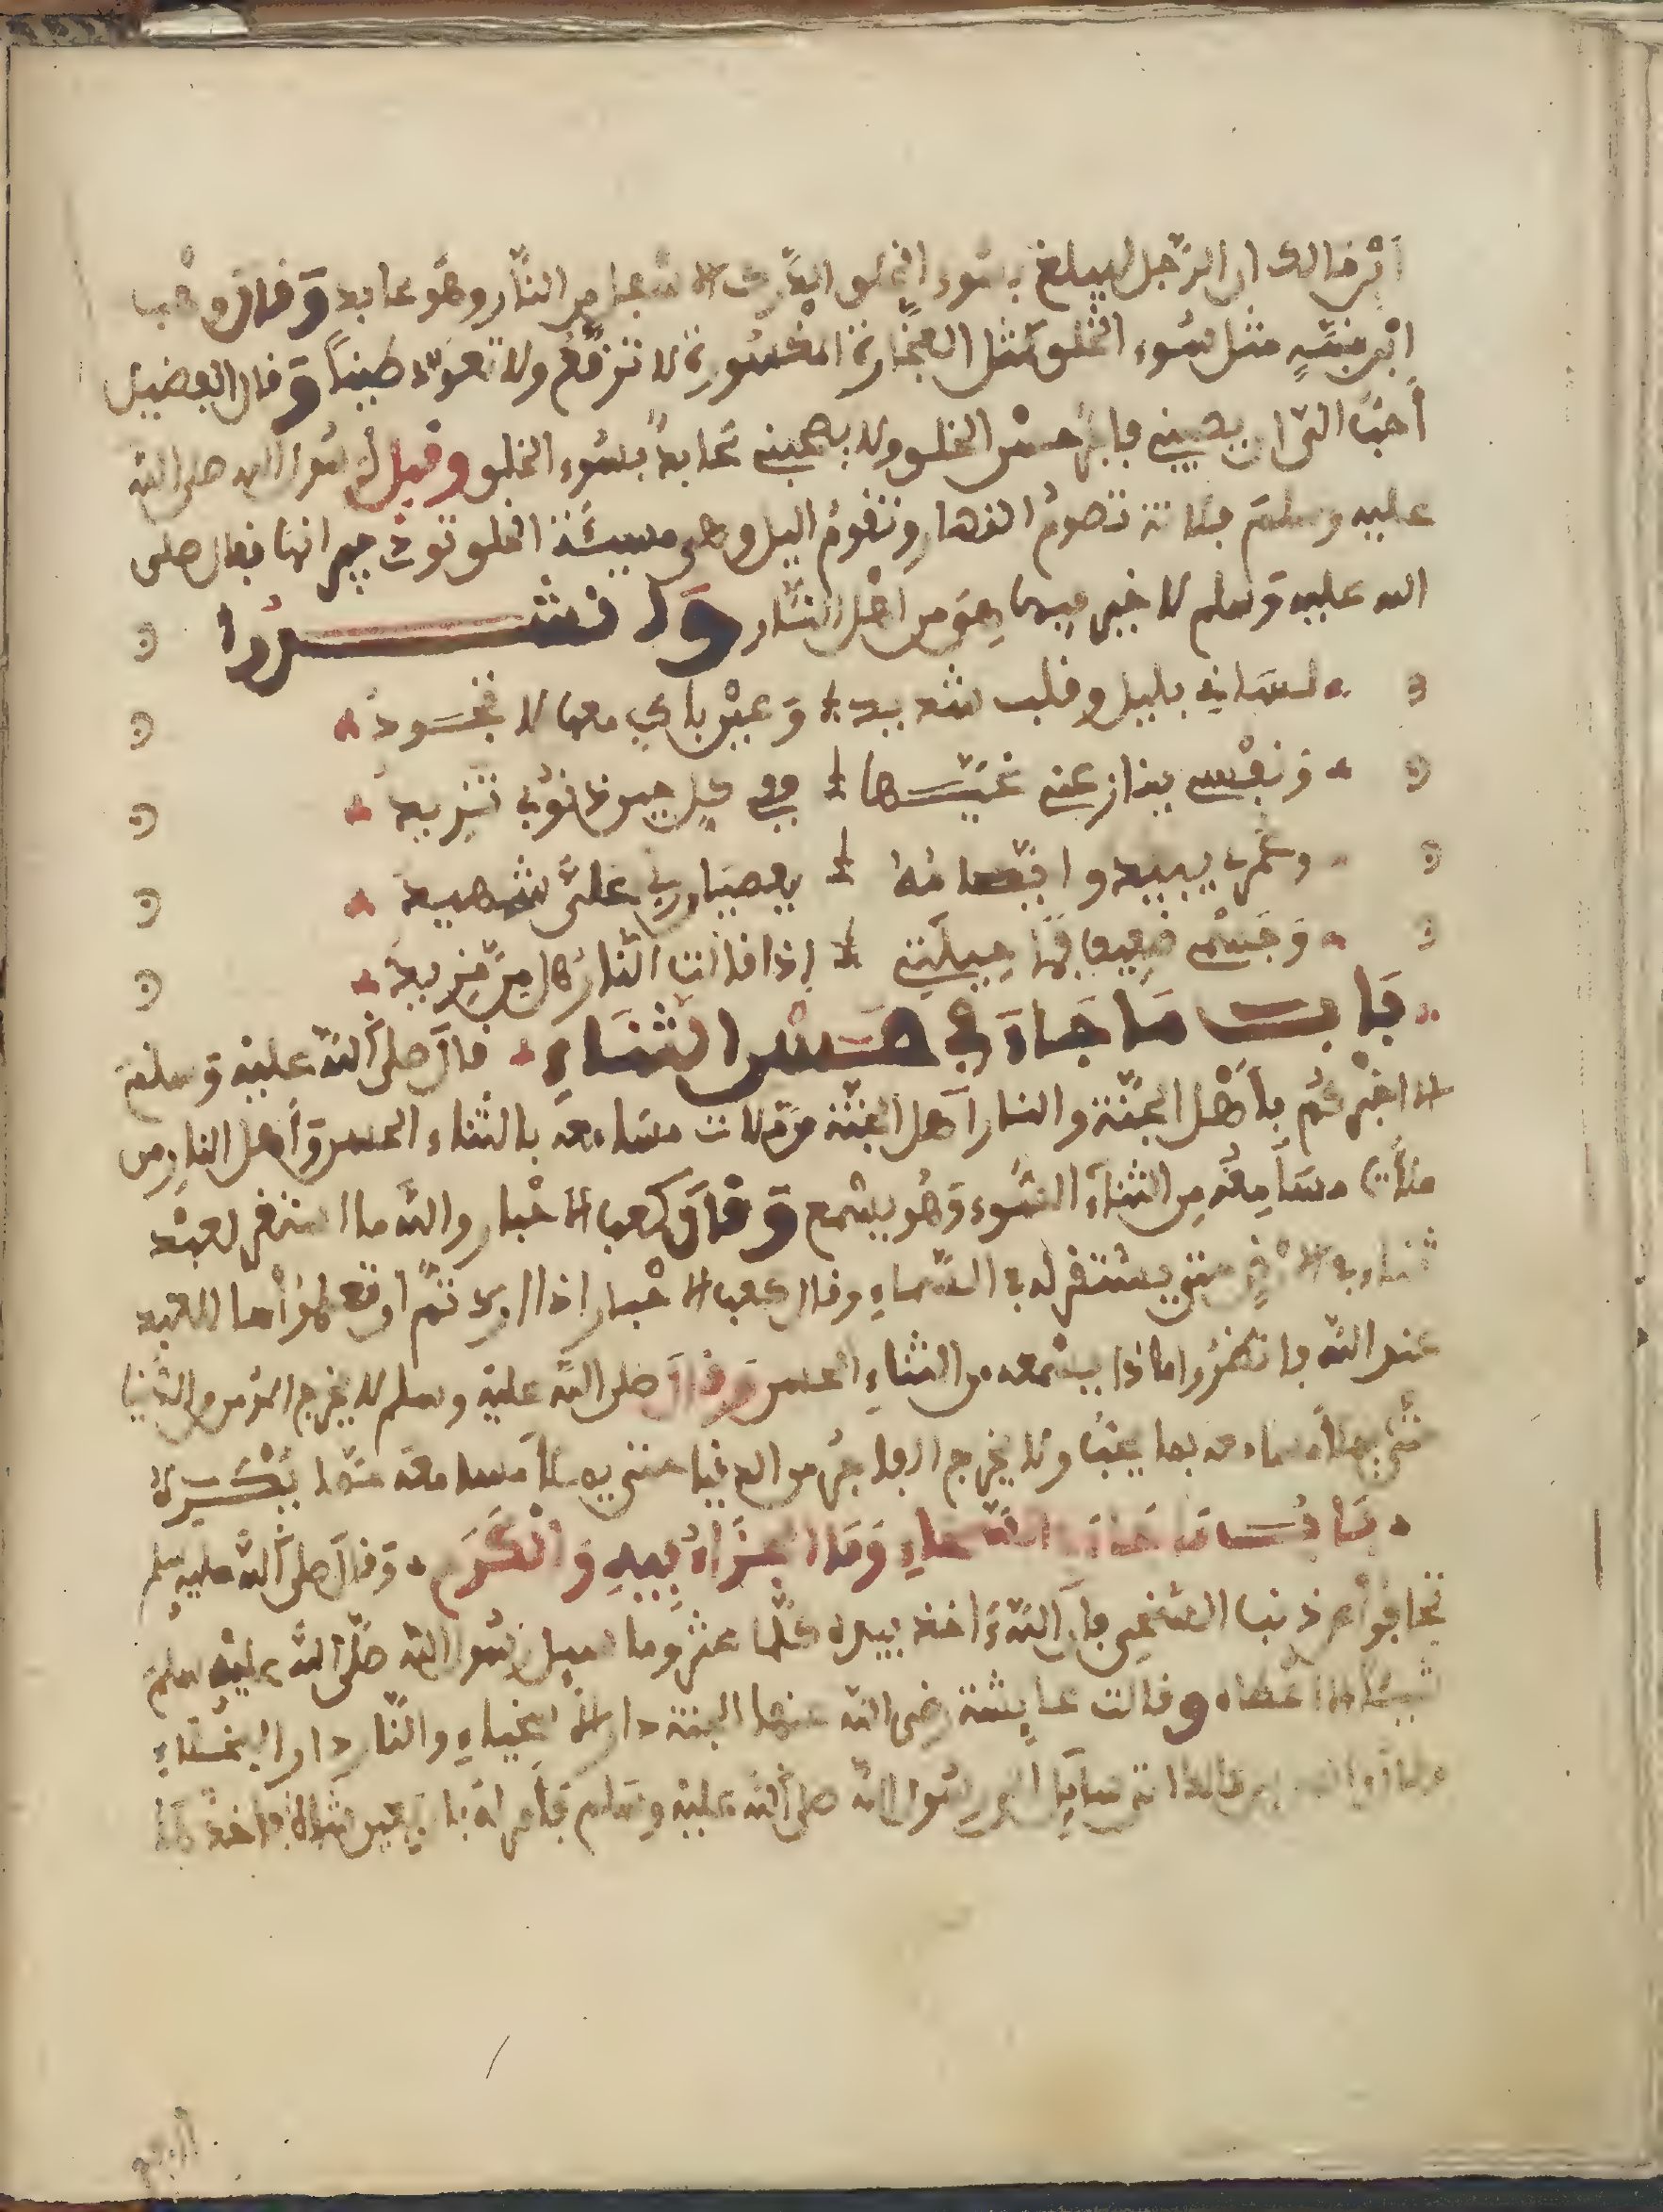 ابن مالك ان الرّجل ليبلغ بسُوء الخلو الدّرك الاسْفل من النّار وهُو عابد وَفال وهْب
ابْن منبّهٍ مثل سُوء الخلو كمثل الفخّارة المكْسُورة لا ترفّع ولا تعوّد طيناً وَفال الفضيل
أحبّ الىّ ان يصْحبني فاجر حسْن الخلو ولا يصحبني عابدٌ بسُوء الخلو وفيل لرسُول الله صلى الله
عليه وسلم فلانة تصومُ النهار وتفومُ اليل وهى سيئة الخلو توذ جيرانها فقال صلى
الله عليه وَسلم لا خير فيها هي من اهْل النّار وَانشدُوا
لسَاني بليل وفلب شديد وَعيْن باكي معها لا تجسود
وَنفْسي ينازعني غيّسها ففي كل حين ذنوب تزيد
وعمري يبيد وافعاله بعصيان ربي علىّ شهيد
وَجسْمي ضعيف فما حيلتي إذا فالت النّار هل من مّزيد
بَابُ مَا جَاءَ في حسْن الثنَاءِ فال صلى الله عليْه وَسلم
الا اخبْركُم بأهْل الجنّة والنار أهل الجنّة من ملات مسَامعه بالثناء الحسن وَأهل النارِ من
ملأت مسَامِعُه مِن الثنآء السُّوء وَهُو يسْمع وَفال كعب الاحْبار والله ما استقر لعبْد
ثناء في الارْضِ حتى يستقر له في السّماءِ وفال كعب الاحْبار اذا اردتمْ ان تعلموا ما للعبد
عند الله فانظرُوا ماذا يسْمعه من الثناءِ الحسن وَفال صلى الله عليْه وسلم لا يخرج المؤمن من الدّنيا
حتّى يملأ مسامعه بما يحبُّ ولا يخرج الفاجرُ من الدنيا حتى يملأ مسامعه ممّا يكْسره
بَابُ مَا جَاءَ في السّخاءِ وَمَا الجزَآءُ فيهِ وَالكَرَم وَفال صلى الله عليه وسلم
تجافوْا عن ذنب السّخيِ فان الله ءَاخذ بيده كلّما عثر وما سيل رسُول الله صلّى الله عليْه وسلم
شيئا الا اعطاه وفالت عايشة رضى الله عنها الجنة دار الاسْخياءِ والنّار دار البخلاءِ
الى رسُول الله صلى الله عليْه وسلم فأمر لهُ